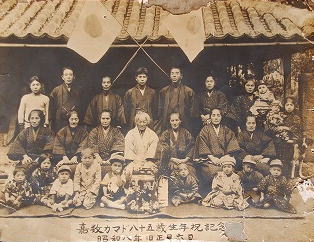 嘉數カマト八十五歳生年祝記念
昭和八年旧正月六日